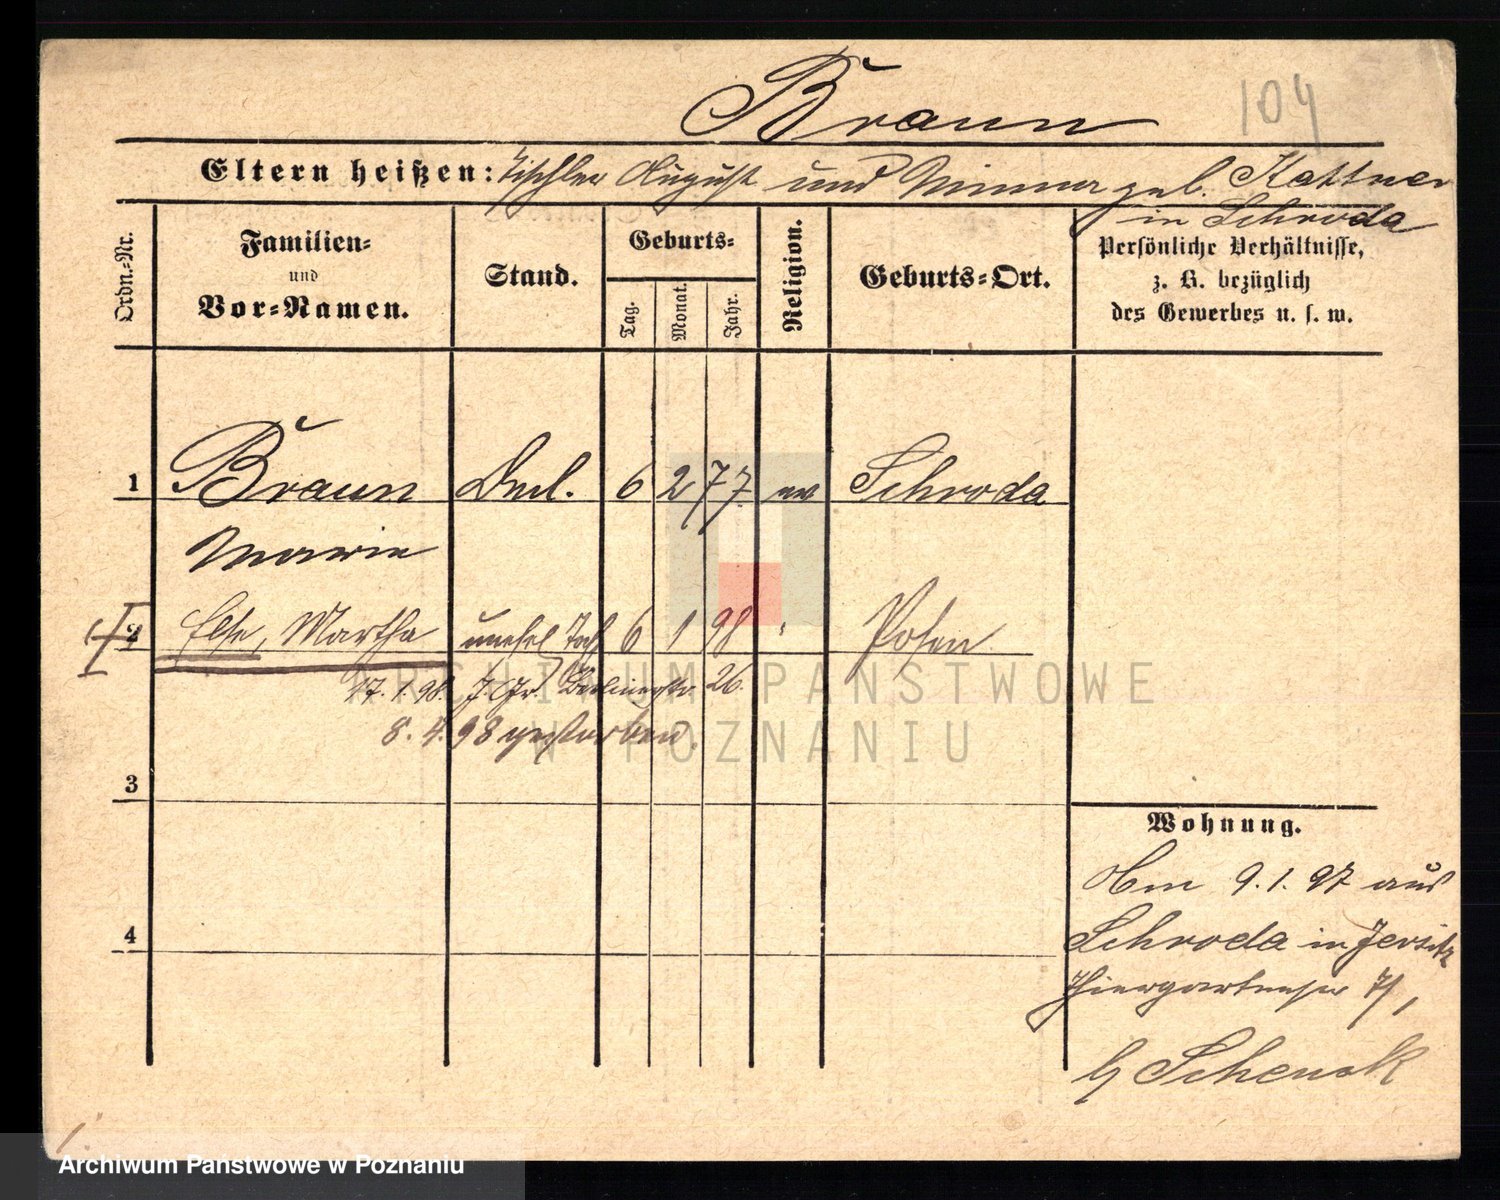 Braun
104
Eltern heißen: Tischler August und Minna geb. Kattner
in Schroda
Ordn.-Nr.
Familien-
und
Vor-Namen.
Stand.
Geburts-
Tag.
Monat.
Jahr.
Religion.
Geburts-Ort.
Persönliche Verhältnisse,
z. B. bezüglich
des Gewerbes u. s. w.
1 Braun 6 2 77 ev Schroda
Marie
2 Else, Martha unehel. Tocht 6 1 98 " Posen
17. 1. 98. Berlinerstr. 26.
8. 4. 98 gestorben.
3
4
Wohnung.
Am 9. 1. 97 aus
Schroda in Jersitz
Thiergartenstr
b/ Schenk
ARCHIWUM PAŃSTWOWE
W POZNANIU
Archiwum Państwowe w Poznaniu